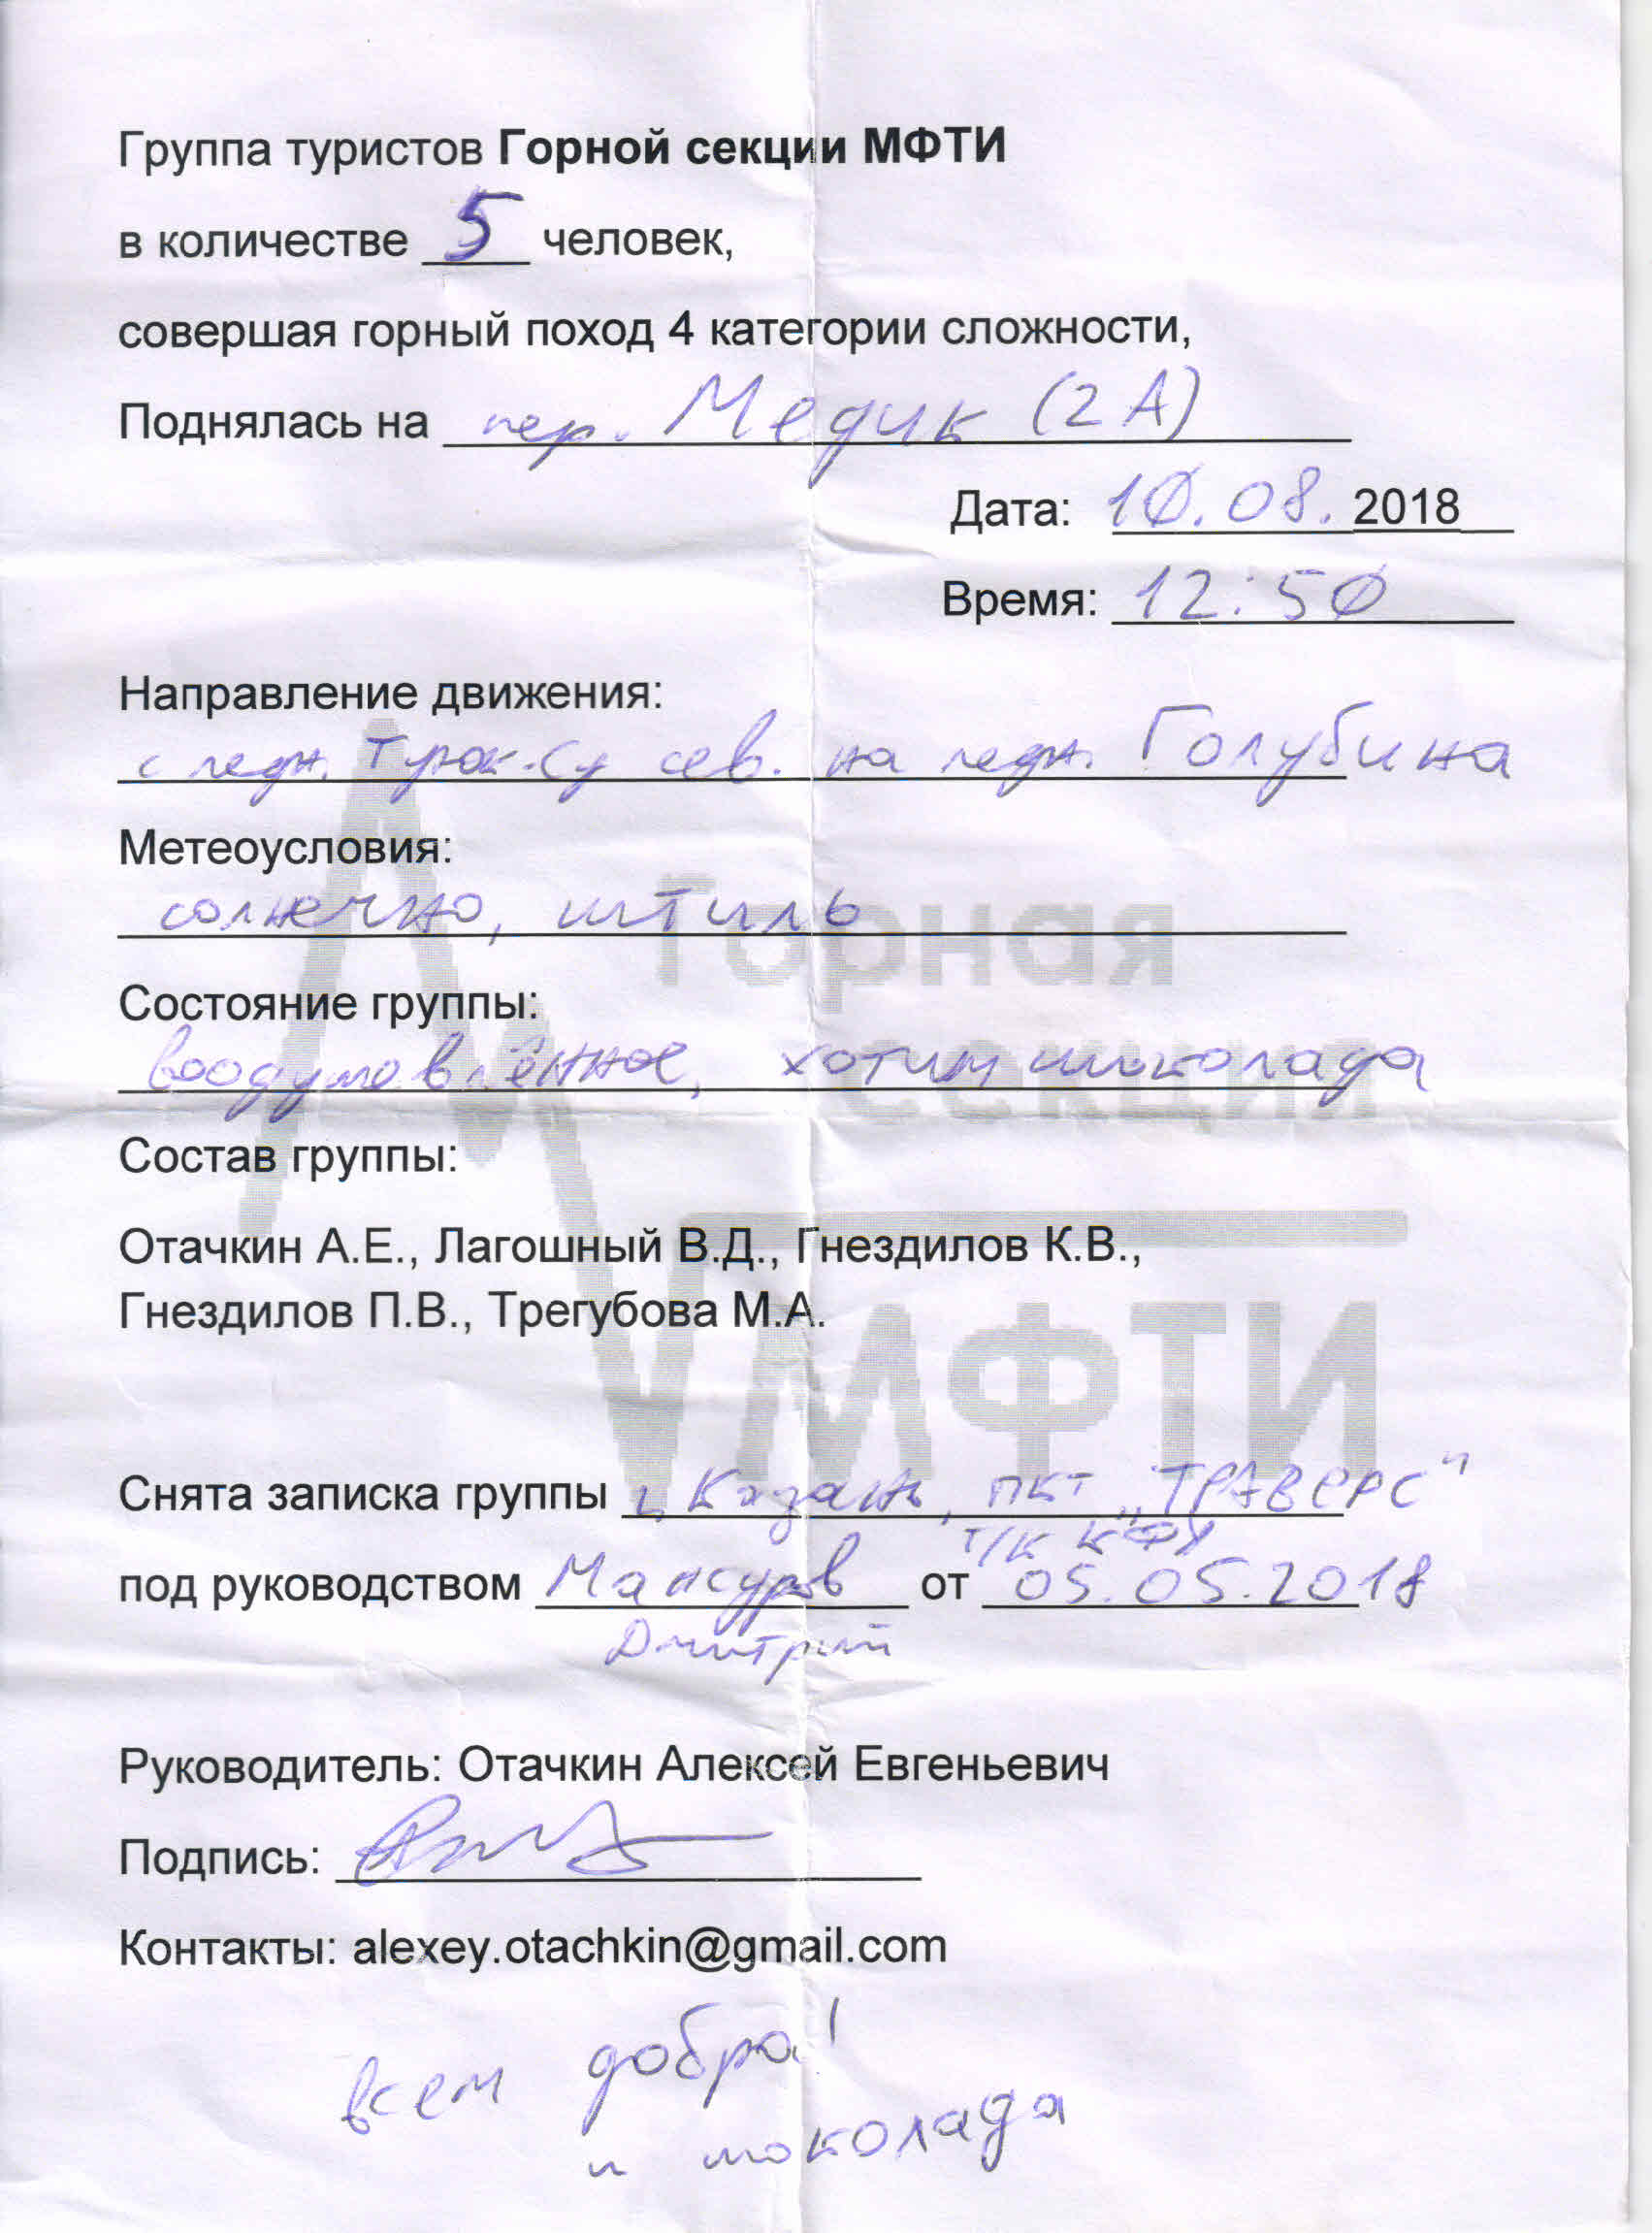 Группа туристов Горной секции МФТИ
в количестве 5 человек,
совершая горный поход 4 категории сложности,
Поднялась на пер. Медик (2А)
Дата: 10.08.2018
Время: 12:50
Направление движения:
с ледн. Тюк-Су сев. на ледн. Голубина
Метеоусловия:
солнечно, штиль
Состояние группы:
воодушевлённое, хотим шоколада
Состав группы:
Отачкин А.Е., Лагошный В.Д., Гнездилов К.В.,
Гнездилов П.В., Трегубова М.А.
Снята записка группы г. Казань, ПКТ "ТРАВЕРС"
Т/К КФУ
под руководством Мансуров от 05.05.2018
Дмитрий
Руководитель: Отачкин Алексей Евгеньевич
Подпись:
Контакты: alexey.otachkin@gmail.com
всем добра!
и шоколада
Горная
секция
МФТИ